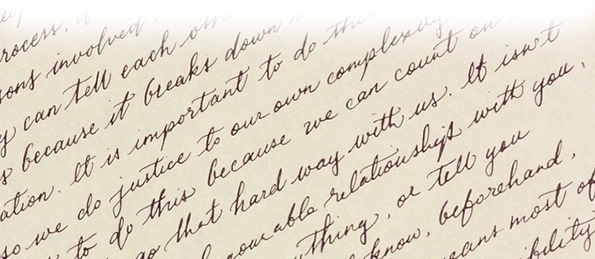 process,
sons involved,
can tell each other
because it breaks down
ation. It is important to do this
so we do justice to our own complexity
to do this because we can count on
go that hard way with us. It isn't
honorable relationship with you,
anything, or tell you
know, beforehand,
means most of